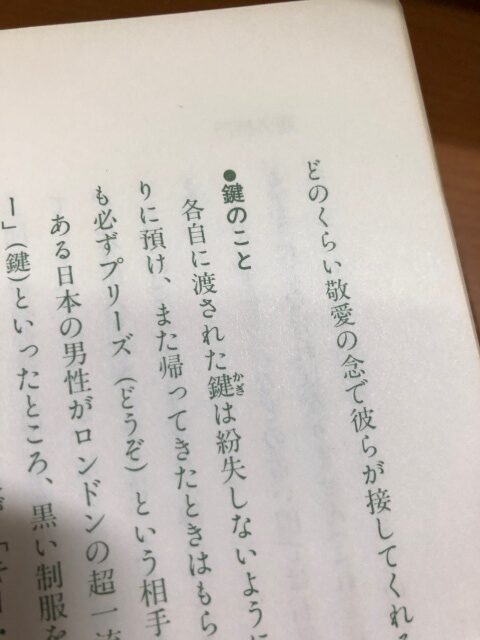 どのくらい敬愛の念で彼らが接してくれ
●鍵のこと
各自に渡された鍵は紛失しないように
かぎ
りに預け、また帰ってきたときはもら
も必ずプリーズ（どうぞ）という相手
ある日本の男性がロンドンの超一流
ー」（鍵）といったところ、黒い制服を